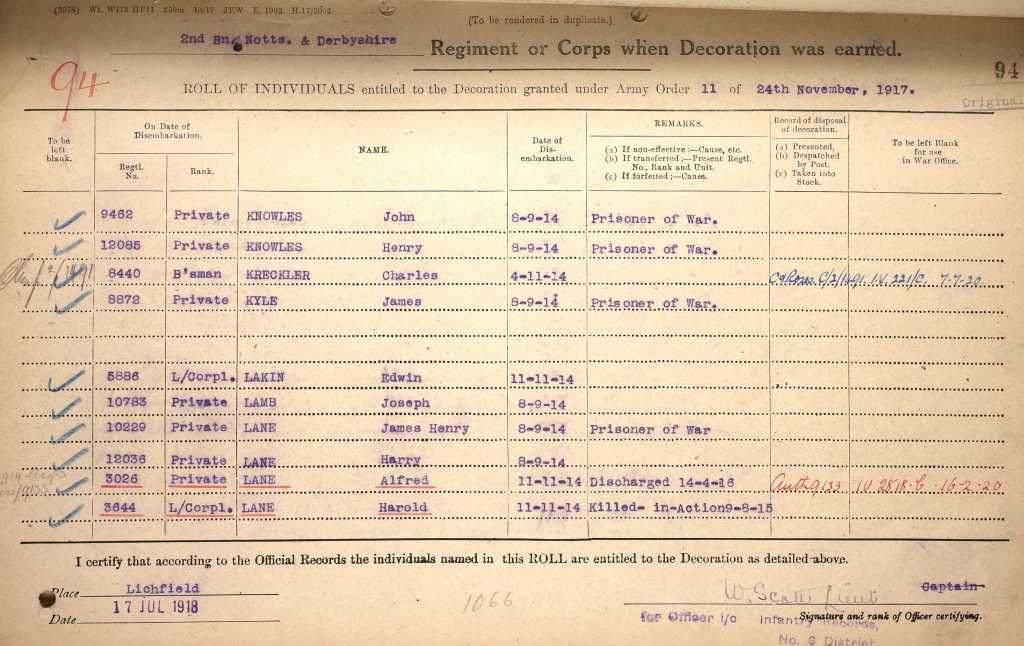 (To be rendered in duplicate.)
2nd Bn. Notts. & Derbyshire Regiment or Corps when Decoration was earned.
94
94
ROLL OF INDIVIDUALS entitled to the Decoration granted under Army Order 11 of 24th November, 1917.
Original
To be left blank.
On Date of Disembarkation.
Regtl. No.
Rank.
NAME.
Date of Disembarkation.
REMARKS.
(a) If non-effective :—Cause, etc.
(b) If transferred ;—Present Regtl. No., Rank and Unit.
(c) If forfeited ;—Cause.
Record of disposal of decoration.
(a) Presented,
(b) Despatched by Post.
(c) Taken into Stock.
To be left Blank for use in War Office.
9462 Private KNOWLES John 8-9-14 Prisoner of War.
12085 Private KNOWLES Henry 8-9-14 Prisoner of War.
8440 B'sman KRECKLER Charles 4-11-14 7-7-20
8872 Private KYLE James 8-9-14 Prisoner of War.
5886 L/Corpl. LAKIN Edwin 11-11-14
10783 Private LAMB Joseph 8-9-14
10229 Private LANE James Henry 8-9-14 Prisoner of War
12036 Private LANE Harry 8-9-14
3026 Private LANE Alfred 11-11-14 Discharged 14-4-16 Auth 9133 IV 2818.6 16-2-20
3644 L/Corpl. LANE Harold 11-11-14 Killed- in-Action9-8-15
I certify that according to the Official Records the individuals named in this ROLL are entitled to the Decoration as detailed above.
Place Lichfield
Date 17 JUL 1918
1066
W. Scott Lieut
Captain
Signature and rank of Officer certifying.
for Officer i/c Infantry Records,
No. 6 District